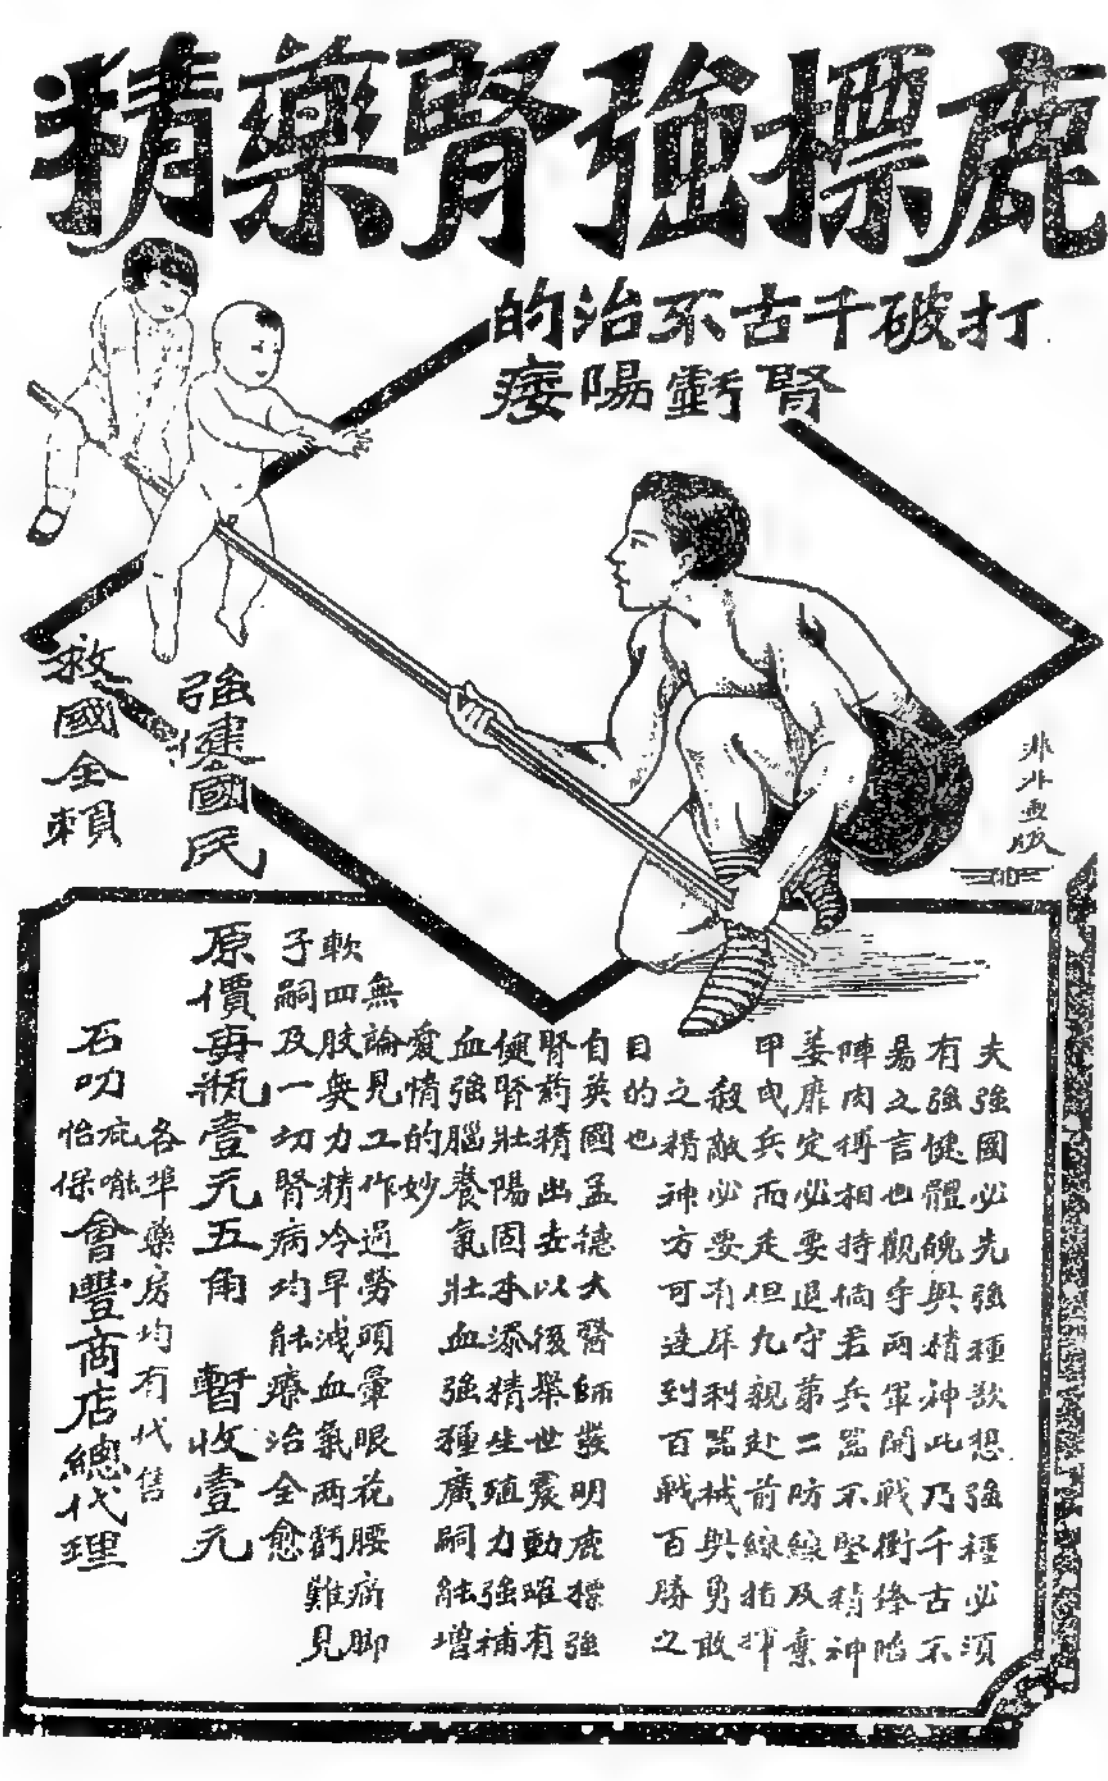 鹿標強腎藥精
打破千古不治的
腎虧陽痿
強健國民
救國全賴
非非畫版
夫強國必先強種欲想強種必須
有強健體魄與精神此乃千古不
易之言也觀乎兩軍開戰衝鋒陷
陣肉搏相持倘若兵器不堅精神
萎靡定必要退守第二防線及棄
甲曳兵而走但凡親赴前線指揮
殺敵必要有犀利器械與勇敢
之精神方可達到百戰百勝之
目的也
自英國孟德大醫師發明鹿標強
腎葯精出世以後舉世震動確有
健腎壯陽固本添精生殖力強補
血強腦養氣壯血強種廣嗣能增
愛情的妙
無論見工作過勞頭暈眼花腰痛脚
軟四肢無力精冷早洩血氣兩虧難見
子嗣及一切腎病均能療治全愈
原價每瓶壹元五角 暫收壹元
各埠藥房均有代售
石叻
庇嚨
怡保
會豐商店總代理